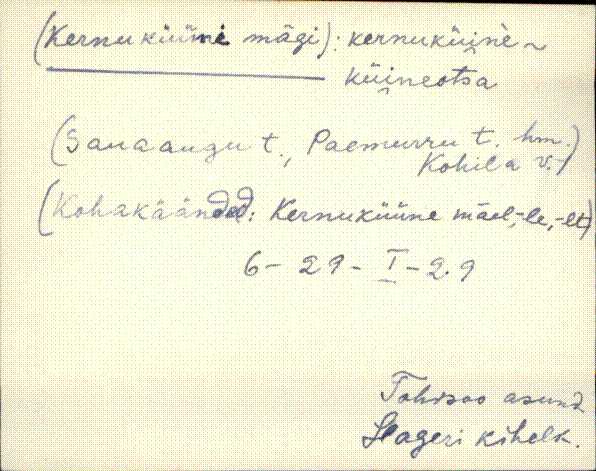 (Kernuküüni mägi): kernuküine ~
küineotsa
(Sauaaugu t., Paemurru t. hm.)
Kohila v.)
(Kohakäänded: Kernuküüne mäel, -le, -lt)
6 - 29 - I - 2.9
Tohisoo asund.
Hageri kihelk.